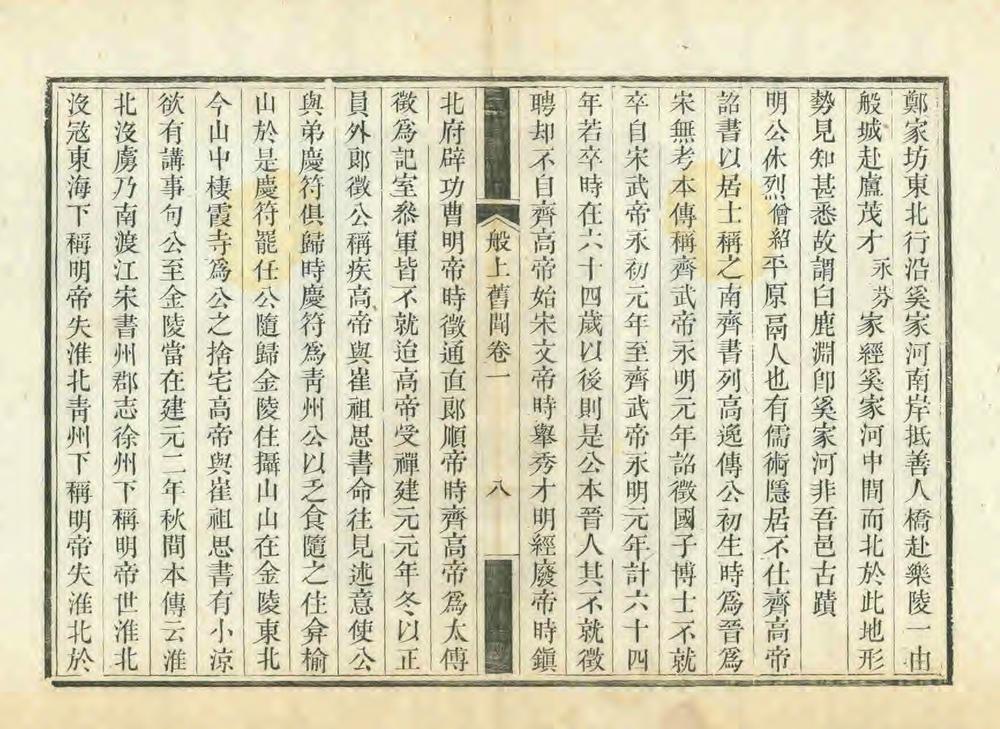 鄭家坊東北行沿奚家河南岸抵善人橋赴樂陵一由
般城赴盧茂才永芬家經奚家河中間而北於此地形
勢見知甚悉故謂白鹿淵卽奚家河非吾邑古蹟
明公休烈僧紹平原鬲人也有儒術隱居不仕齊高帝
詔書以居士稱之南齊書列高逸傳公初生時爲晉爲
宋無考本傳稱齊武帝永明元年詔徵國子博士不就
卒自宋武帝永初元年至齊武帝永明元年計六十四
年若卒時在六十四歲以後則是公本晉人其不就徵
聘却不自齊高帝始宋文帝時舉秀才明經廢帝時鎭
般上舊聞卷一
八
北府辟功曹明帝時徵通直郞順帝時齊高帝爲太傅
徵爲記室叅軍皆不就迨高帝受禪建元元年冬以正
員外郞徵公稱疾高帝與崔祖思書命往見述意使公
與弟慶符俱歸時慶符爲靑州公以乏食隨之住弇榆
山於是慶符罷任公隨歸金陵住攝山山在金陵東北
今山中棲霞寺爲公之捨宅高帝與崔祖思書有小涼
欲有講事句公至金陵當在建元二年秋間本傳云淮
北沒虜乃南渡江宋書州郡志徐州下稱明帝世淮北
沒宼東海下稱明帝失淮北靑州下稱明帝失淮北於